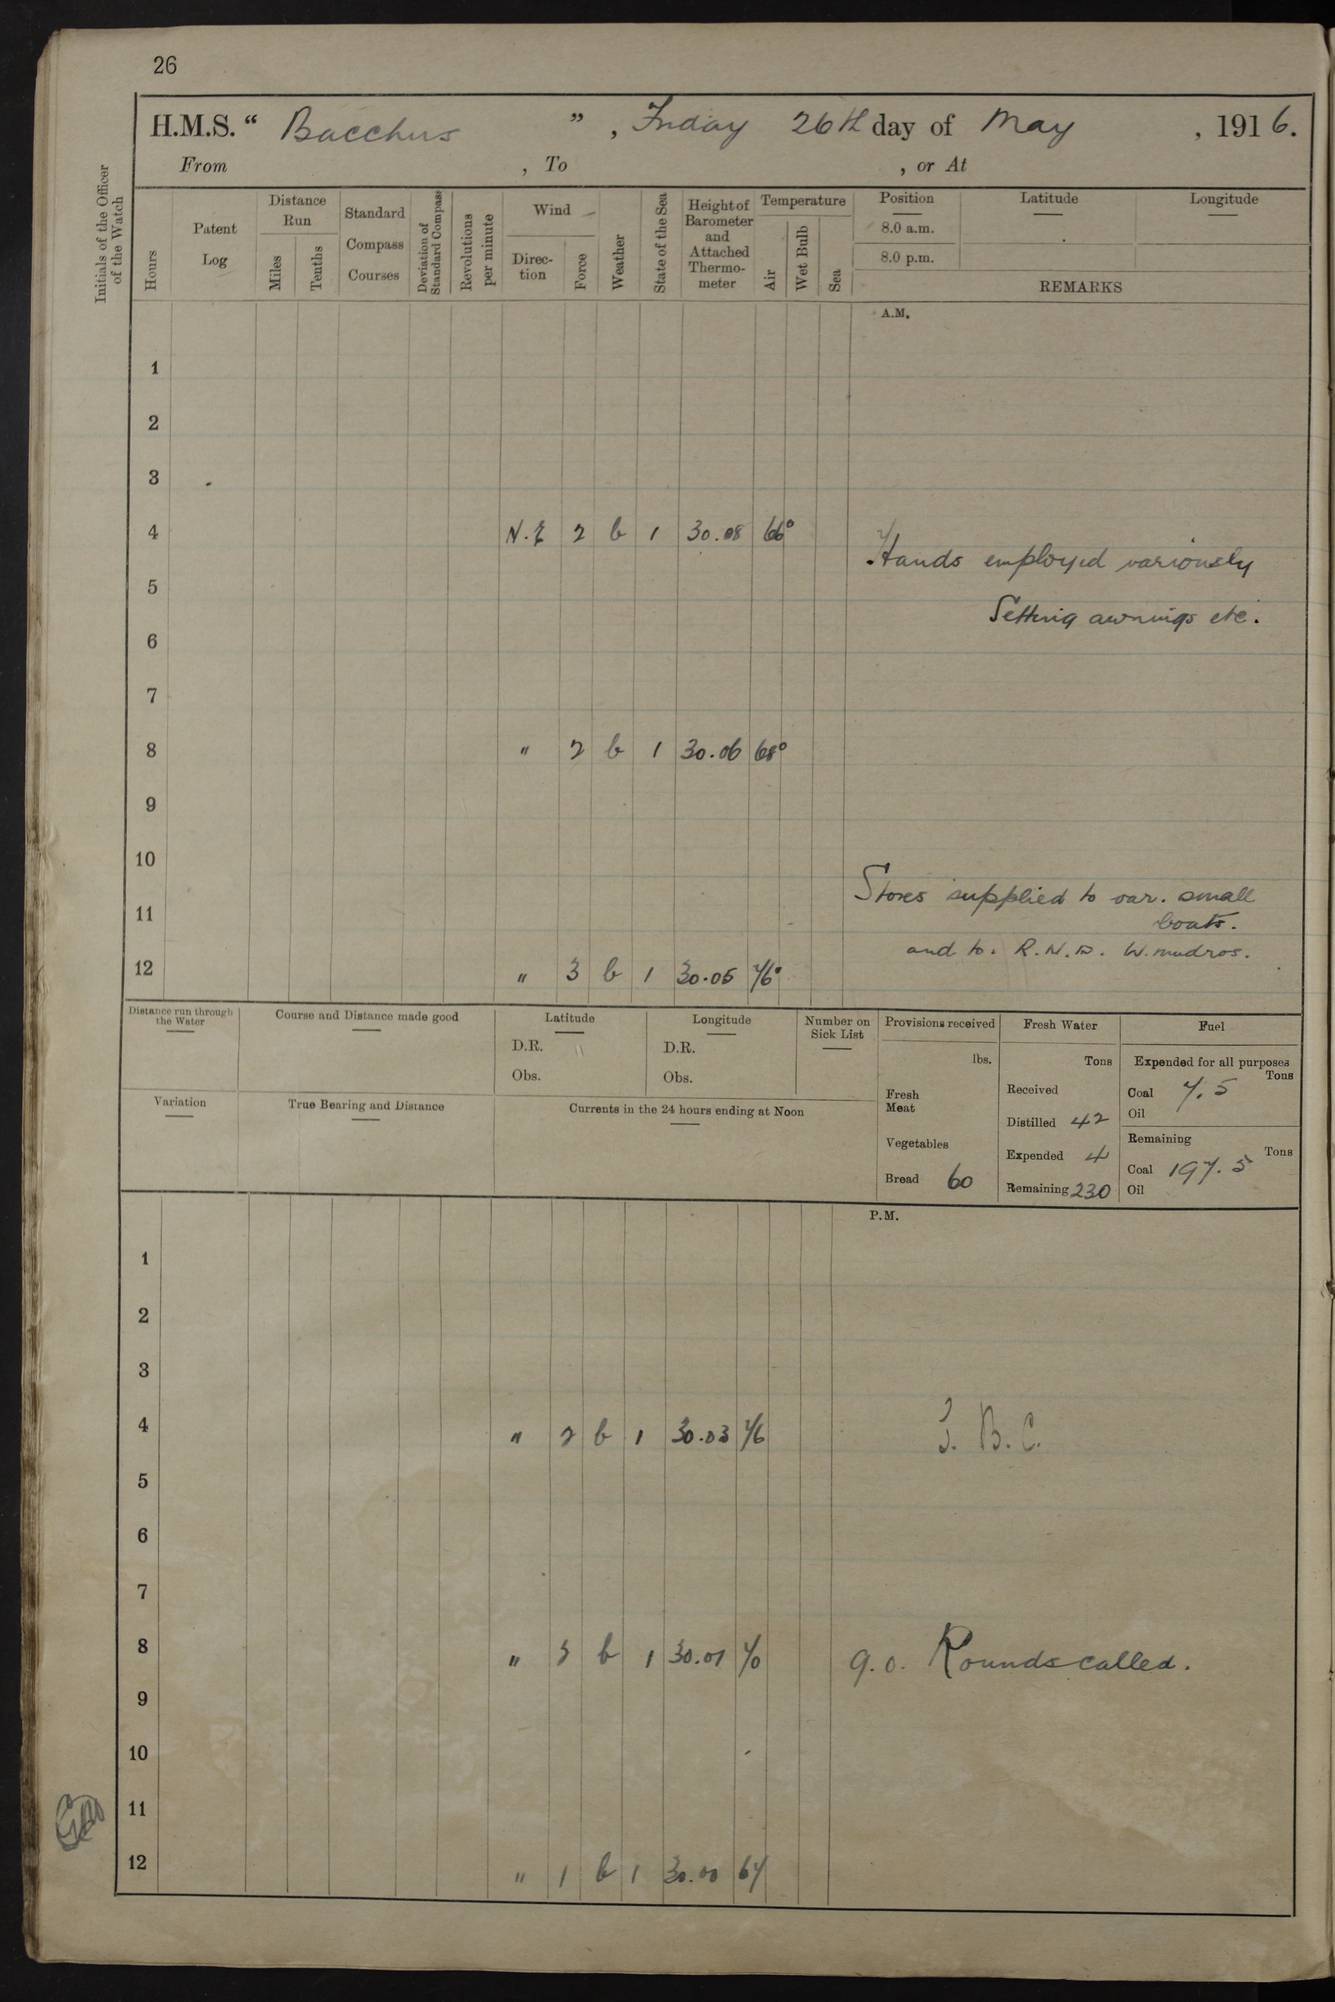 26
H.M.S. “ Bacchus ” , Friday 26th day of May , 1916.
From , To , or At
Initials of the Officer of the Watch
Hours
Patent Log
Distance Run
Miles
Tenths
Standard Compass Courses
Deviation of Standard Compass
Revolutions per minute
Wind
Direc-tion
Force
Weather
State of the Sea
Height of Barometer and Attached Thermo-meter
Temperature
Air
Wet Bulb
Sea
Position
8.0 a.m.
8.0 p.m.
Latitude
Longitude
REMARKS
A.M.
1
2
3
4 N.E 2 b 1 30.08 66°
Hands employed variously
5
Setting awnings etc.
6
7
8 " 2 b 1 30.06 68°
9
10
Stores supplied to var. small
11
boats.
and to. R.N.D. W. mudros.
12 " 3 b 1 30.05 76°
Distance run through the Water
Course and Distance made good
Latitude
D.R.
Obs.
Longitude
D.R.
Obs.
Number on Sick List
Provisions received
lbs.
Fresh Meat
Vegetables
Bread 60
Fresh Water
Tons
Received
Distilled 42
Expended 4
Remaining 230
Fuel
Expended for all purposes
Tons
Coal 7.5
Oil
Remaining
Tons
Coal 197.5
Oil
Variation
True Bearing and Distance
Currents in the 24 hours ending at Noon
P.M.
1
2
3
4 " 2 b 1 30.03 76
5
6
7
8 " 3 b 1 30.01 70 9.0. Rounds called.
9
10
11
12 " 1 b 1 30.00 67